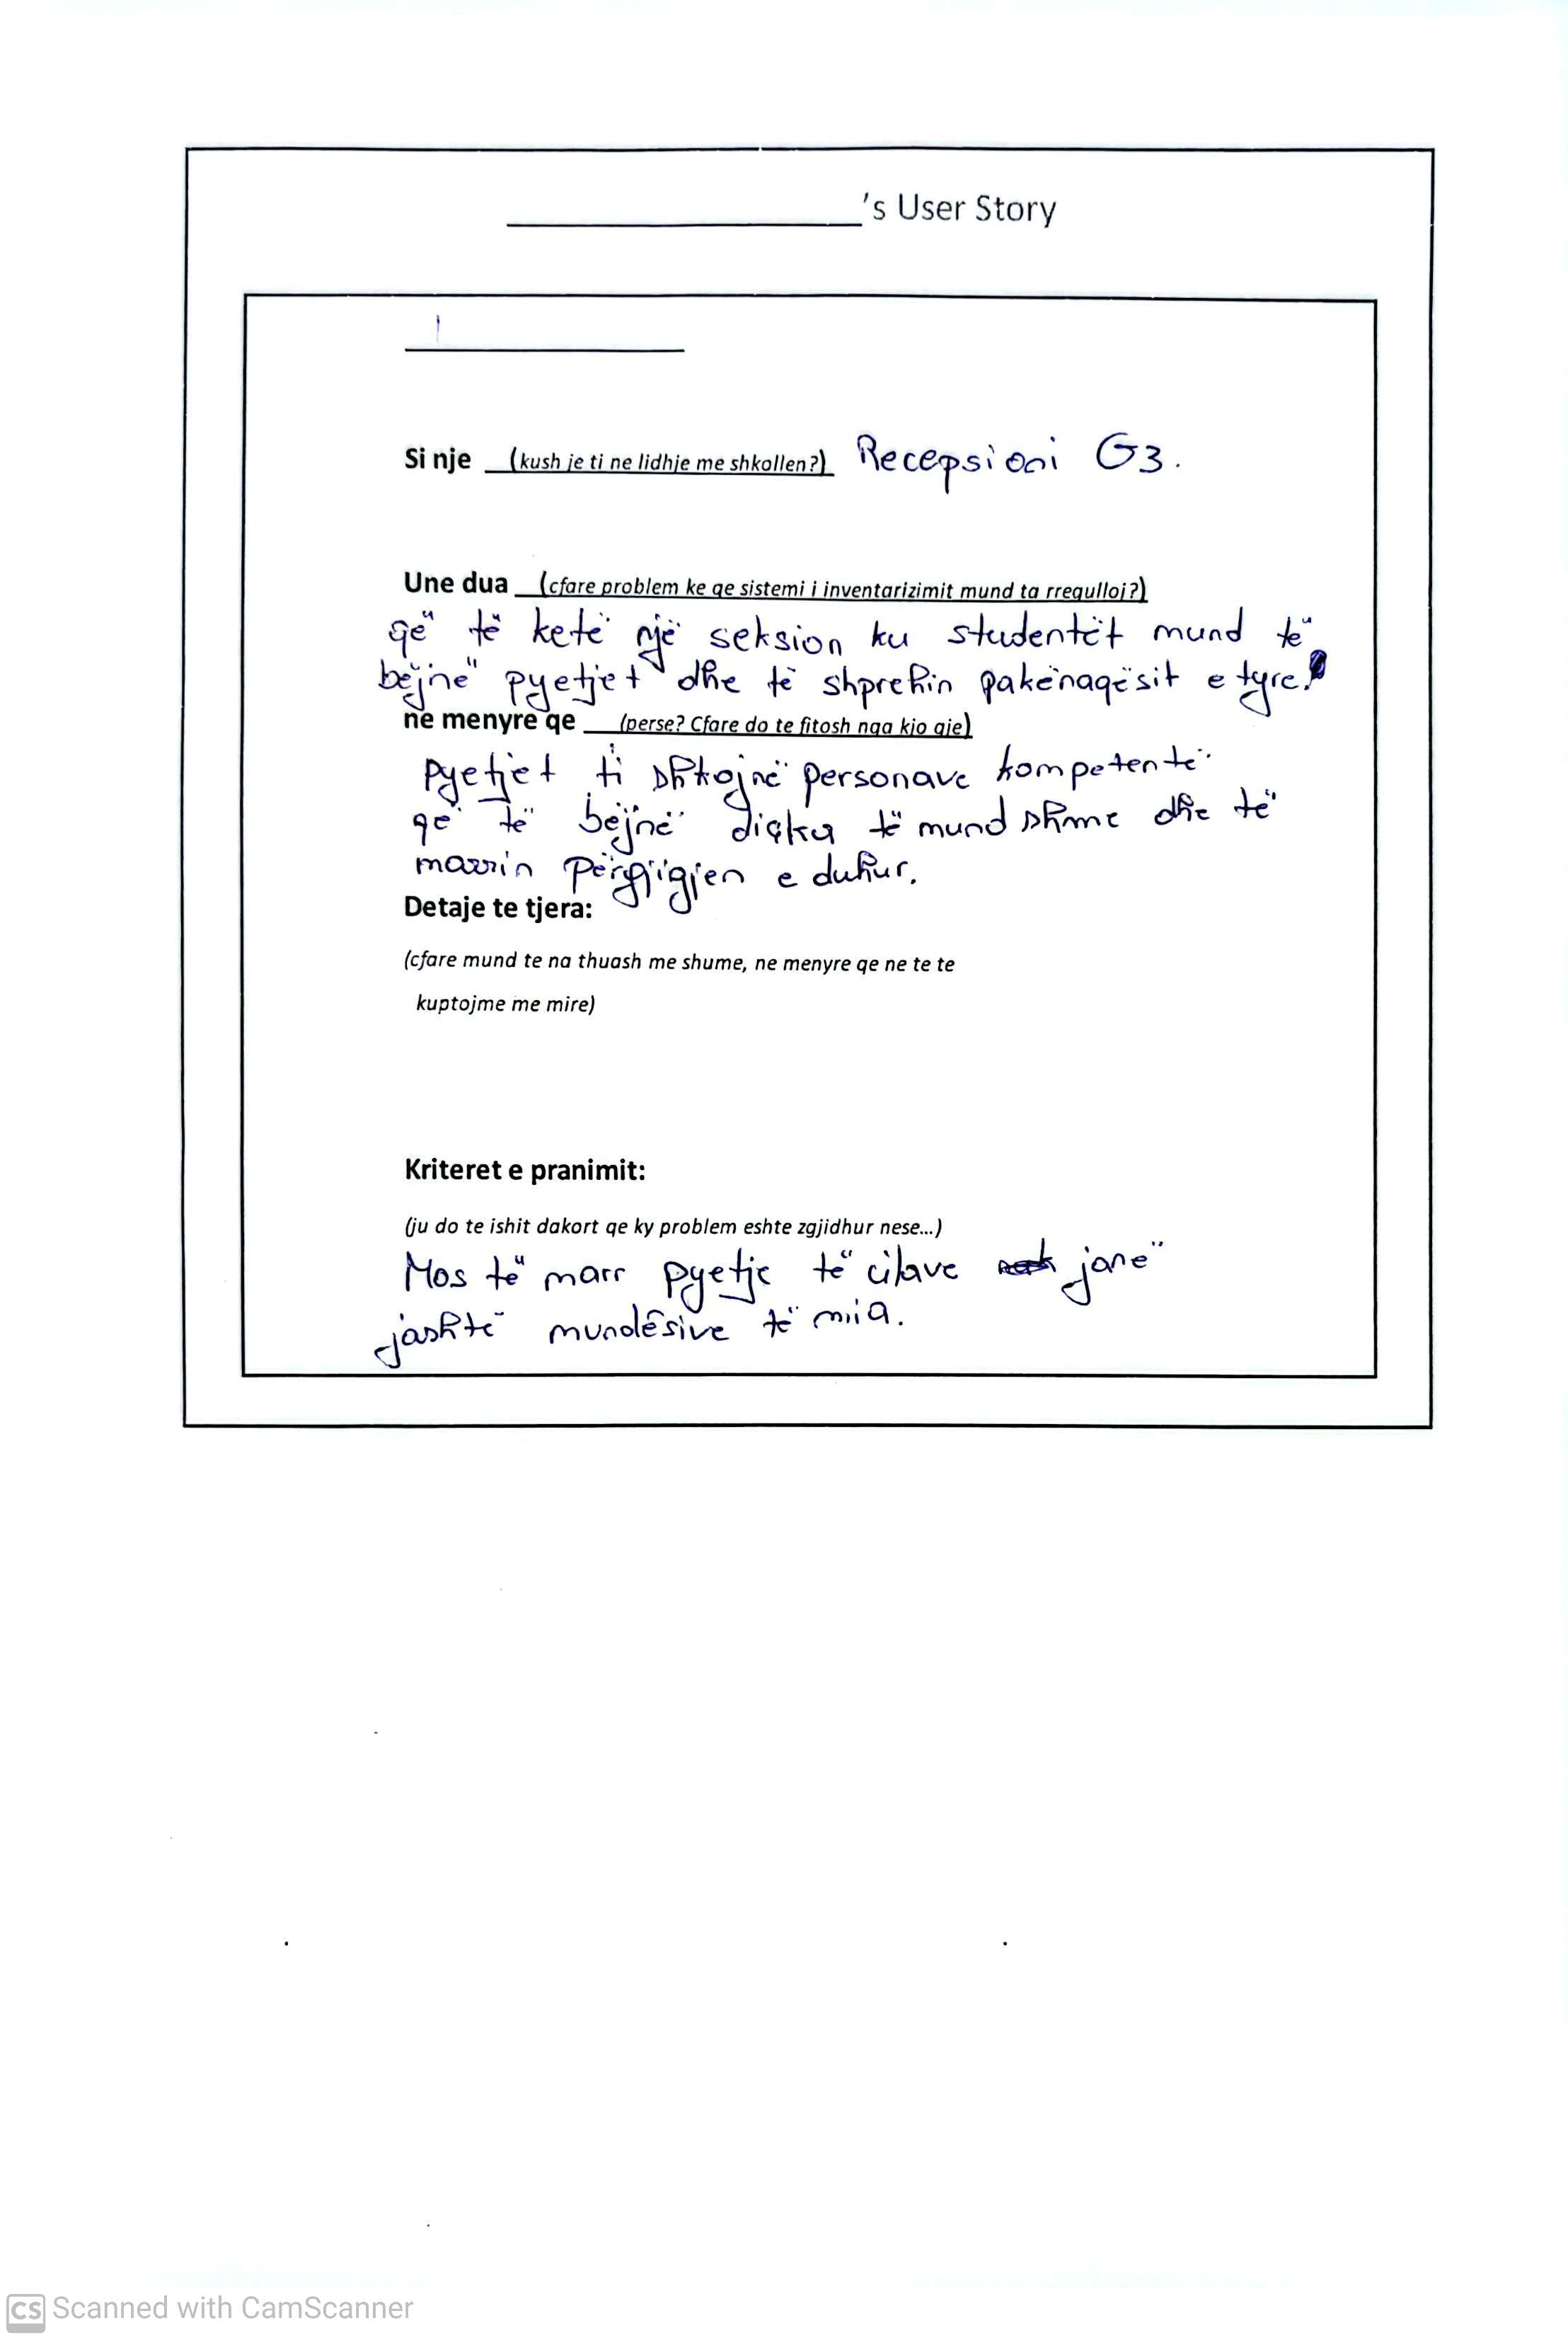 ________________'s User Story
Si nje __(kush je ti ne lidhje me shkollen?) Recepsioni G3.
Une dua __(cfare problem ke qe sistemi i inventarizimit mund ta rregulloj?)
që të ketë një seksion ku studentët mund të
bëjnë pyetjet dhe të shprehin pakënaqësit e tyre.
ne menyre qe ___(perse? Cfare do te fitosh nga kjo gje)
Pyetjet ti shkojnë personave kompetentë
që të bëjnë diçka të mundshme dhe të
marrin përgjigjen e duhur.
Detaje te tjera:
(cfare mund te na thuash me shume, ne menyre qe ne te te
kuptojme me mire)
Kriteret e pranimit:
(ju do te ishit dakort qe ky problem eshte zgjidhur nese...)
Mos të marr pyetje të cilave janë
jashtë mundësive të mia.
CS Scanned with CamScanner